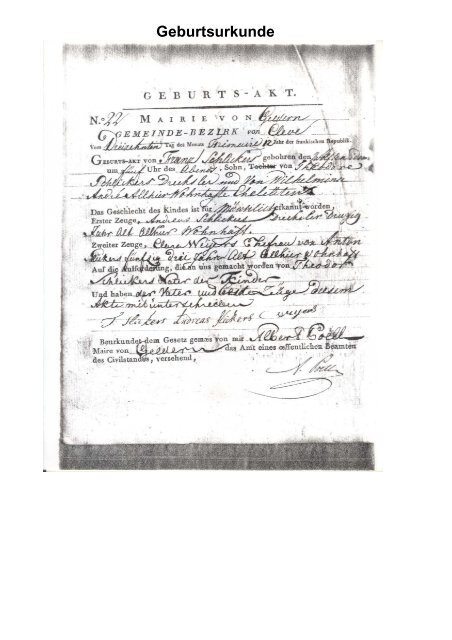 Geburtsurkunde
GEBURTS-AKT.
N.o 22 MAIRIE VON Geldern
GEMEINDE-BEZIRK von Cleve
Vom Dreizehnten Tag des Monats Frimaire 12 Jahr der frankischen Republik.
GEBURTS-AKT von Franz Schlickers gebohren den
um fünf Uhr des Abends, Sohn, Tochter von Theodore
Schlickers Drechsler und von Wilhelmina
Andrá Allhier Wohnhafte Eheleute
Das Geschlecht des Kindes ist für Männlich erkannt worden,
Erster Zeuge, Andreas Schlickers Drechsler Dreizig
Jahr Alt Allhier Wohnhaft
Zweiter Zeuge, Ehefrau von Anton
fünfzig Drei Jahr Alt Allhier Wohnhaft
Auf die Aufforderung, die an uns gemacht worden von Theodor
Schlickers Vater des Kinder
Und haben der Vater und Zeuge diesem
Akte mit unterschrieben
T Slickers Andreas Slickers
Beurkundet dem Gesetz gemæs von mir Albert Poell
Maire von Geldern das Amt eines œffentlichen Beamten
des Civilstandes, versehend,
A. Poell